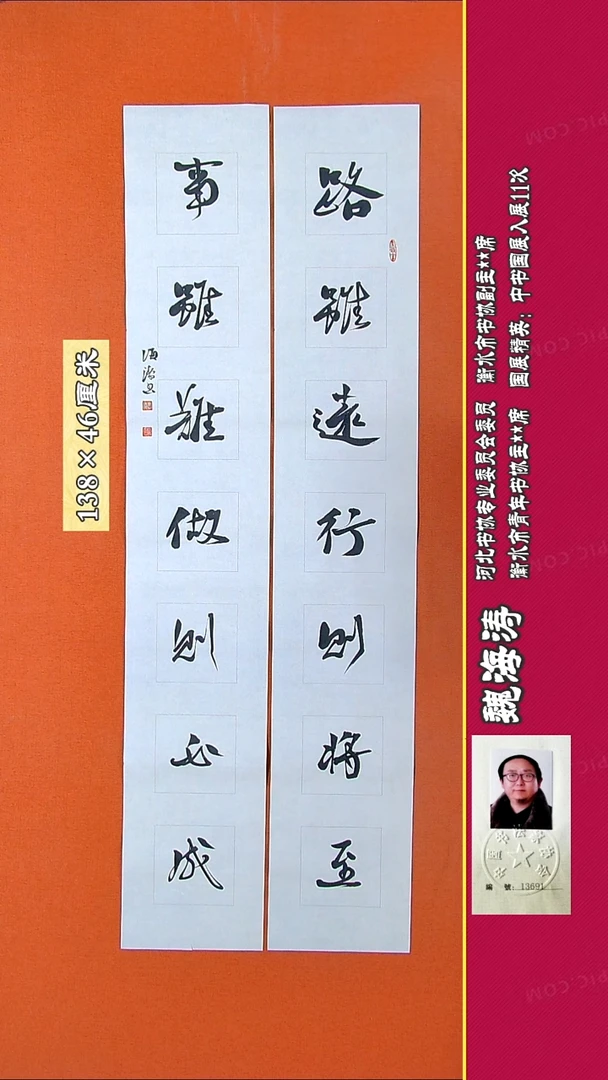 路雖遠行則將至
事雖難做則必成
海濤书
138×46厘米
魏海涛
河北书协专业委员会委员 衡水市书协副主**席
衡水市青年书协主**席 国展精英:中书国展入展11次
编 號:13691
PIC.COM